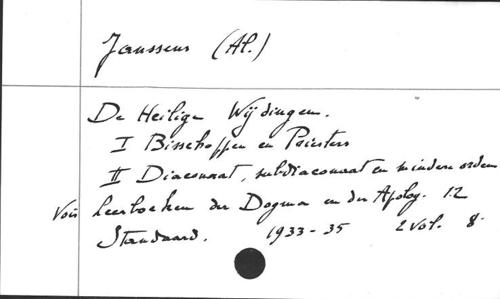 Janssens (Al.)
De Heilige Wijdingen.
I Bisschoppen en Priesters
II Diaconaat, subdiaconaat en mindere orden
Voir Leerboeken der Dogma en der Apolog. 12
Standaard. 1933-35 2 vol. 8°